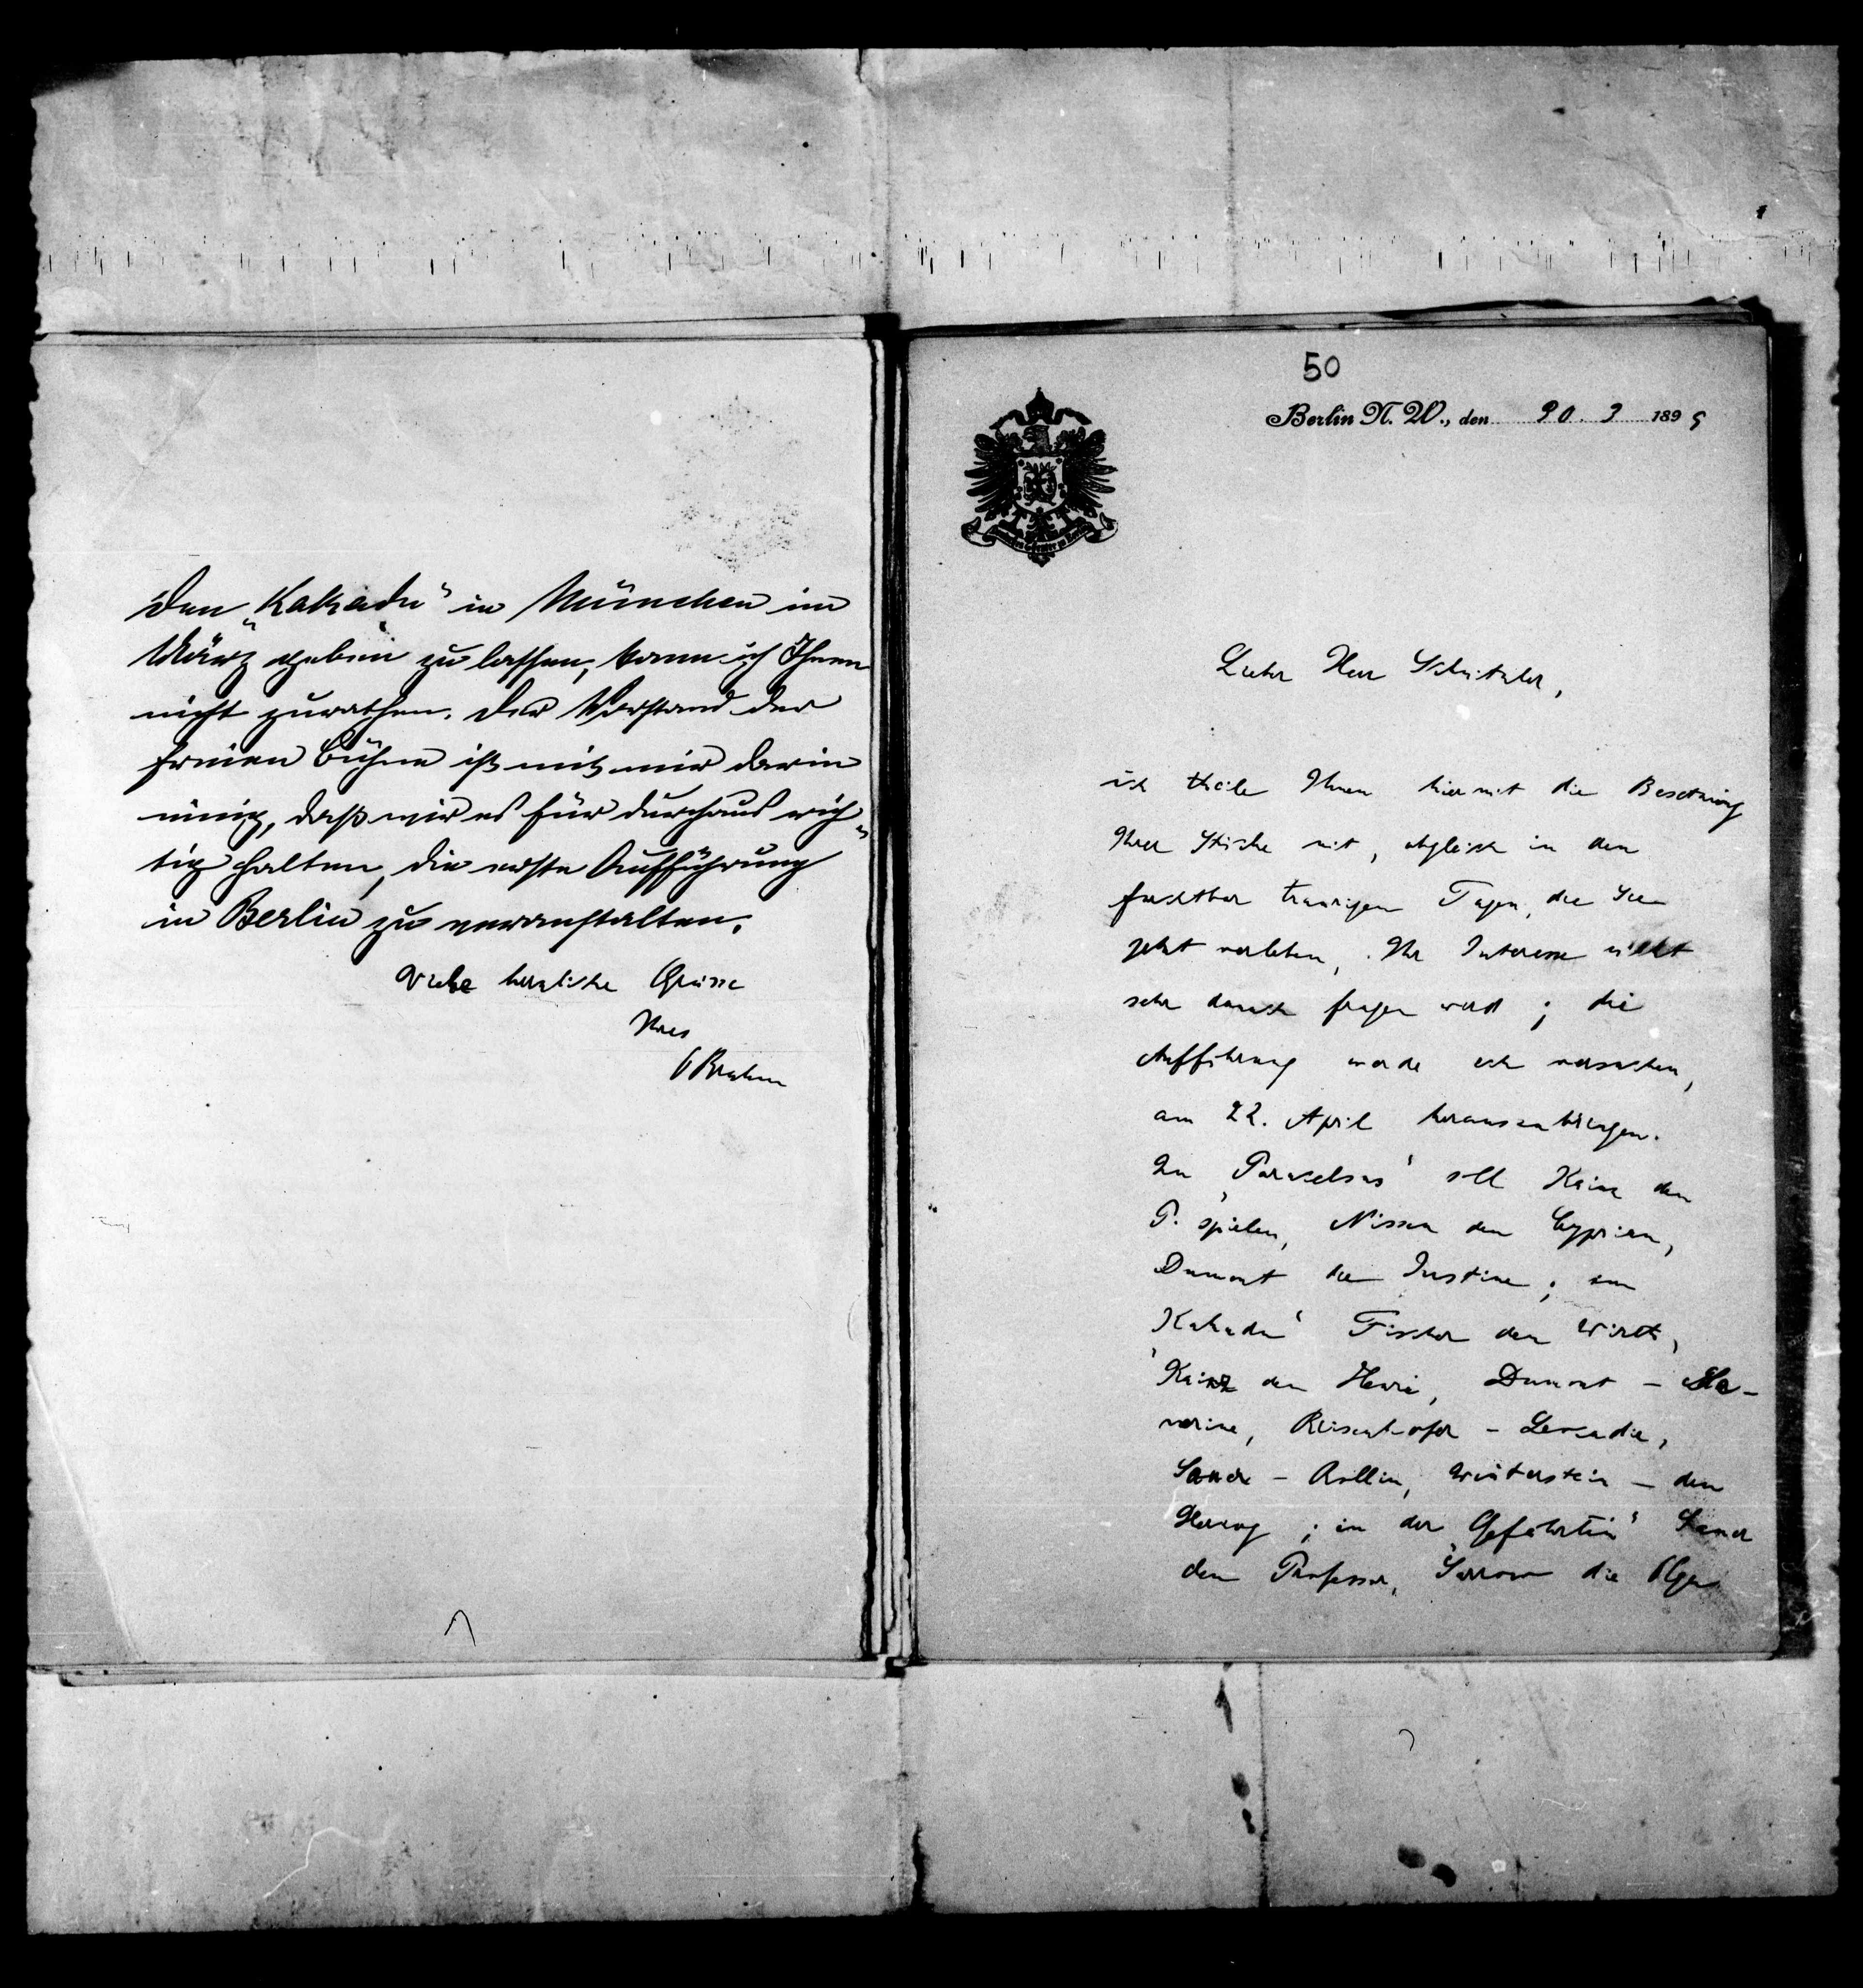 Den „Kakadu“ in München im
März geben zu lassen, kann ich Ihnen
nicht zurathen. Der Vorstand der
freien Bühne ist mit mir darin
einig, daß wir es für durchaus rich-
tig halten, die erste Aufführung
in Berlin zu veranstalten.
Viele herzliche Grüsse
Ihres
OBrahm
50
Berlin N. W., den 30. 3 1899
Lieber Herr Schnitzler,
ich theile Ihnen hiermit die Besetzung
Ihrer Stücke mit, obgleich in den
furchtbar traurigen Tagen, die Sie
jetzt verleben, Ihr Interesse nicht
sehr danach fragen wird; die
Aufführung werde ich versuchen,
am 22. April herauszubringen.
In „Paracelsus“ soll Kainz den
P. spielen, Nissen den Cyprian,
Dumont die Justina; im
„Kakadu“ Fischer den Wirth,
Kainz den Henri, Dumont – Se-
verine, Reisenhofer – Leocadie,
Sauer – Rollin, Winterstein – den
Herzog; in der „Gefährtin“ Sauer
den Professor, Sarrow die Olga